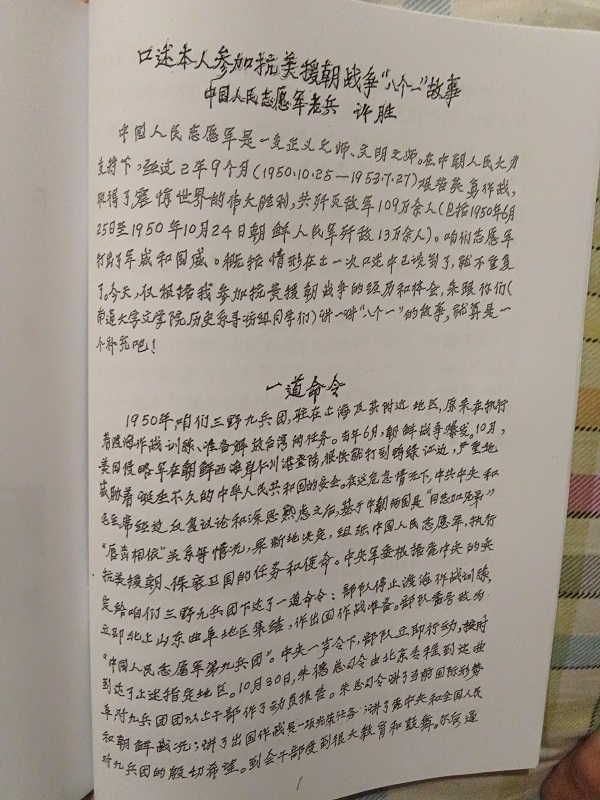 口述本人参加抗美援朝战争"八个一"故事
中国人民志愿军老兵 许胜
中国人民志愿军是一支正义之师、文明之师。在中朝人民大力
支持下,经过2年9个月(1950.10.25—1953.7.27)艰苦英勇作战,
取得了震惊世界的伟大胜利,共歼灭敌军109万余人(包括1950年6月
25日至1950年10月24日朝鲜人民军歼敌13万余人)。咱们志愿军
打出了军威和国威。概括情形在上一次口述中已谈到了,就不重复
了。今天,仅根据我参加抗美援朝战争的经历和体会,来跟你们(
南通大学文学院历史系寻访组同学们)讲一讲"八个一"的故事,就算是一
个补充吧!
一道命令
1950年,咱们三野九兵团,驻在上海及其附近地区,原来在执行
着渡海作战训练、准备解放台湾的任务。当年6月,朝鲜战争爆发。10月,
美国侵略军在朝鲜西海岸仁川港登陆,很快就打到鸭绿江边,严重地
威胁着诞生不久的中华人民共和国的安全。在这危急情况下,中共中央和
毛主席经过反复议论和深思熟虑之后,基于中朝两国是"同志加兄弟"
"唇齿相依"关系等情况,果断地决定,组织中国人民志愿军,执行
抗美援朝、保家卫国的任务和使命。中央军委根据党中央的决
定给咱们三野九兵团下达了一道命令:部队停止渡海作战训练,
立即北上山东曲阜地区集结,作出国作战准备。部队番号改为
"中国人民志愿军第九兵团"。中央一声令下,部队立即行动,按时
到达了上述指定地区。10月30日,朱德总司令由北京专程到达曲
阜对九兵团团以上干部作了动员报告。朱总司令讲了当前国际形势
和朝鲜战况;讲了出国作战是一项光荣任务;讲了党中央和全国人民
对九兵团的殷切希望。到会干部受到很大教育和鼓舞。尔后逐
1